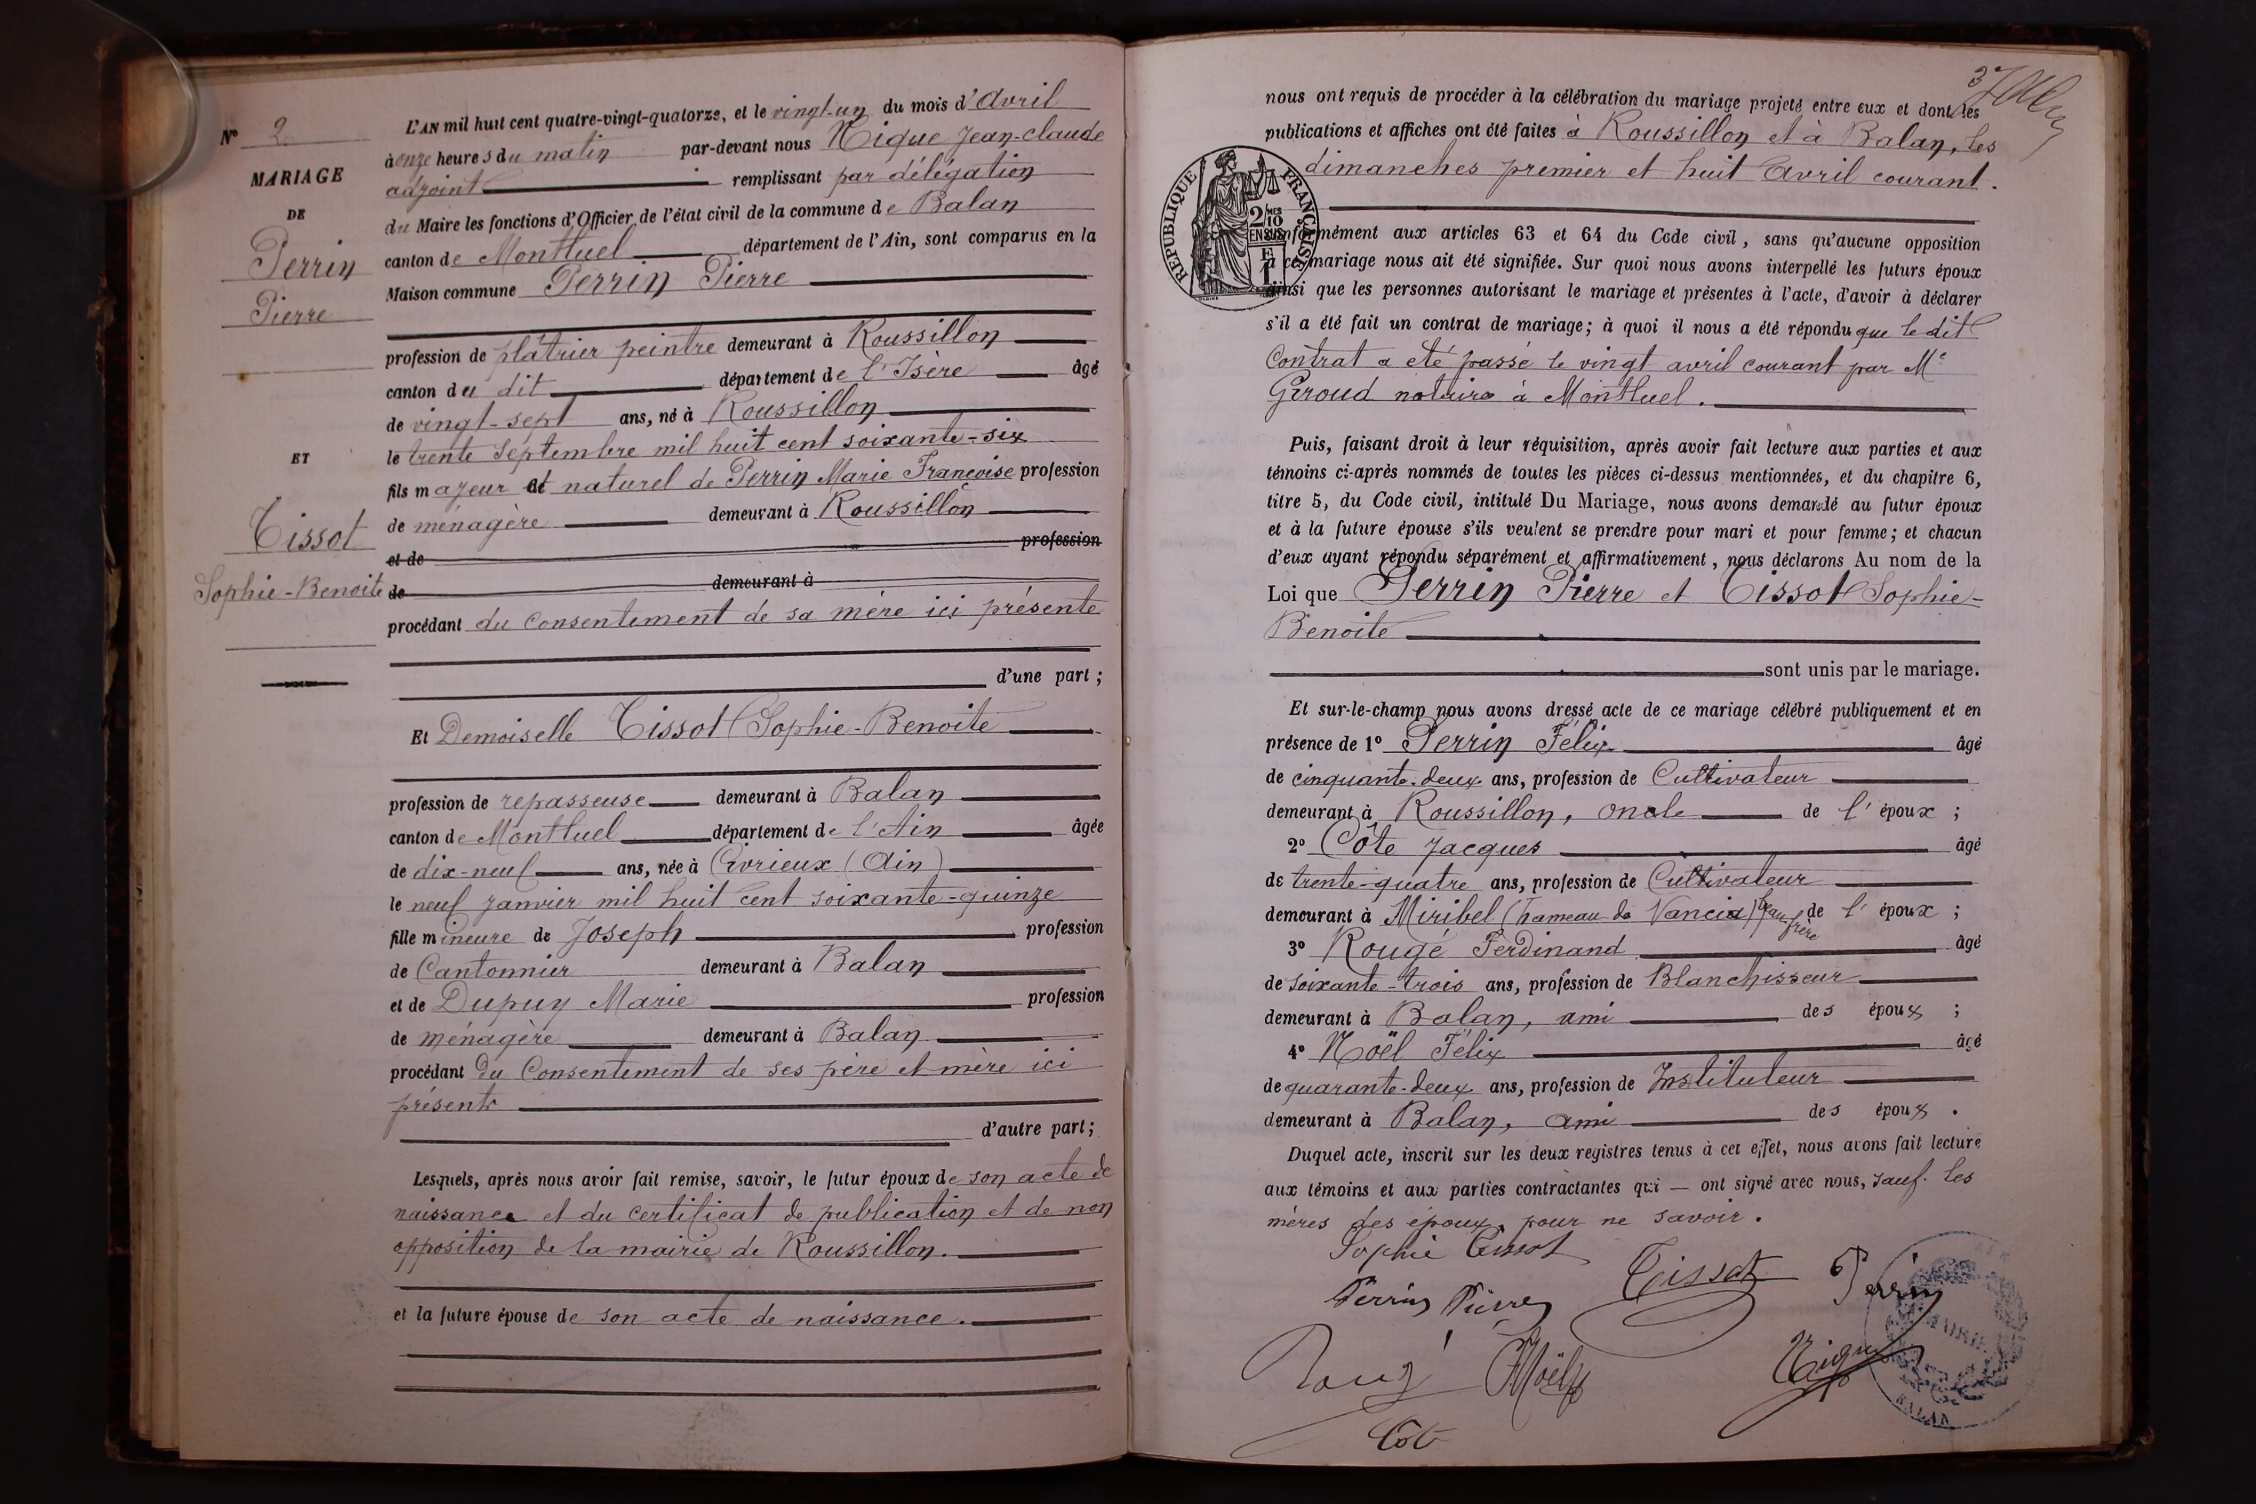 N° 2
MARIAGE
DE
Perrin
Pierre
ET
Tissot
Sophie-Benoite
L'AN mil huit cent quatre-vingt-quatorze, et le vingt-un du mois d'Avril
à onze heures du matin par-devant nous Nique Jean-claude
adjoint remplissant par délégation
du Maire les fonctions d'Officier de l'état civil de la commune de Balan
canton de Montluel département de l'Ain, sont comparus en la
Maison commune Perrin Pierre
profession de plâtrier peintre demeurant à Roussillon
canton du dit département de l'Isère âgé
de vingt-sept ans, né à Roussillon
le trente Septembre mil huit cent soixante-six
fils majeur et naturel de Perrin Marie Françoise profession
de ménagère demeurant à Roussillon
et de profession
de demeurant à
procédant du Consentement de sa mère ici présente
d'une part ;
Et Demoiselle Tissot Sophie-Benoite
profession de repasseuse demeurant à Balan
canton de Montluel département de l'Ain âgée
de dix-neuf ans, née à Civrieux (Ain)
le neuf janvier mil huit cent soixante-quinze
fille mineure de Joseph profession
de Cantonnier demeurant à Balan
et de Dupuy Marie profession
de ménagère demeurant à Balan
procédant du Consentement de ses père et mère ici
présents
d'autre part ;
Lesquels, après nous avoir fait remise, savoir, le futur époux de son acte de
naissance et du certificat de publication et de non
opposition de la mairie de Roussillon.
et la future épouse de son acte de naissance.
nous ont requis de procéder à la célébration du mariage projeté entre eux et dont les
publications et affiches ont été faites à Roussillon et à Balan, les
dimanches premier et huit Avril courant.
RÉPUBLIQUE FRANÇAISE
2/10 EN SUS
conformément aux articles 63 et 64 du Code civil, sans qu'aucune opposition
à ce mariage nous ait été signifiée. Sur quoi nous avons interpellé les futurs époux
ainsi que les personnes autorisant le mariage et présentes à l'acte, d'avoir à déclarer
s'il a été fait un contrat de mariage ; à quoi il nous a été répondu que le dit
Contrat a été passé le vingt avril courant par Me
Giroud notaire à Montluel.
Puis, faisant droit à leur réquisition, après avoir fait lecture aux parties et aux
témoins ci-après nommés de toutes les pièces ci-dessus mentionnées, et du chapitre 6,
titre 5, du Code civil, intitulé Du Mariage, nous avons demandé au futur époux
et à la future épouse s'ils veulent se prendre pour mari et pour femme ; et chacun
d'eux ayant répondu séparément et affirmativement, nous déclarons Au nom de la
Loi que Perrin Pierre et Tissot Sophie-
Benoite
sont unis par le mariage.
Et sur-le-champ nous avons dressé acte de ce mariage célébré publiquement et en
présence de 1° Perrin Félix âgé
de cinquante-deux ans, profession de Cultivateur
demeurant à Roussillon, oncle de l'époux ;
2° Côte Jacques âgé
de trente-quatre ans, profession de Cultivateur
demeurant à Miribel (hameau de Vancia) beau frère de l'époux ;
3° Rougé Ferdinand âgé
de soixante-trois ans, profession de Blanchisseur
demeurant à Balan, ami des époux ;
4° Noël Félix âgé
de quarante-deux ans, profession de Instituteur
demeurant à Balan, ami des époux.
Duquel acte, inscrit sur les deux registres tenus à cet effet, nous avons fait lecture
aux témoins et aux parties contractantes qui — ont signé avec nous, sauf les
mères des époux, pour ne savoir.
Sophie Tissot
Tissot Perrin
Perrin Pierre
Rougé FNoël Nique
Cote
MAIRIE
BALAN